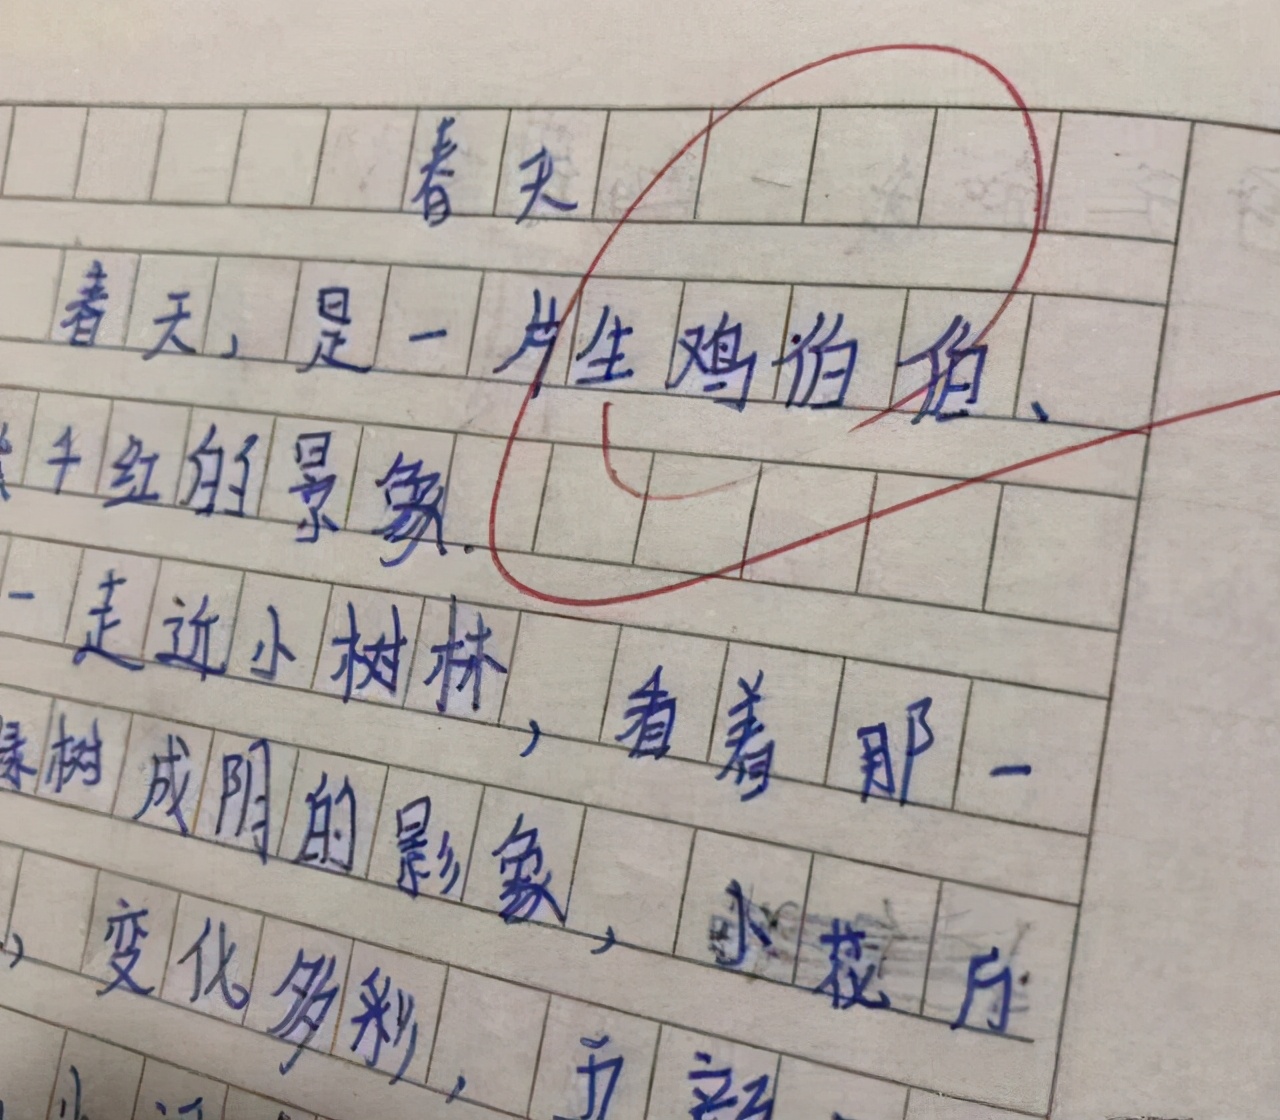 春天
春天，是一片生鸡伯伯、
千红的景象.
一走近小树林，看着那一
绿树成阴的影象，小花片
，变化多彩，五
小